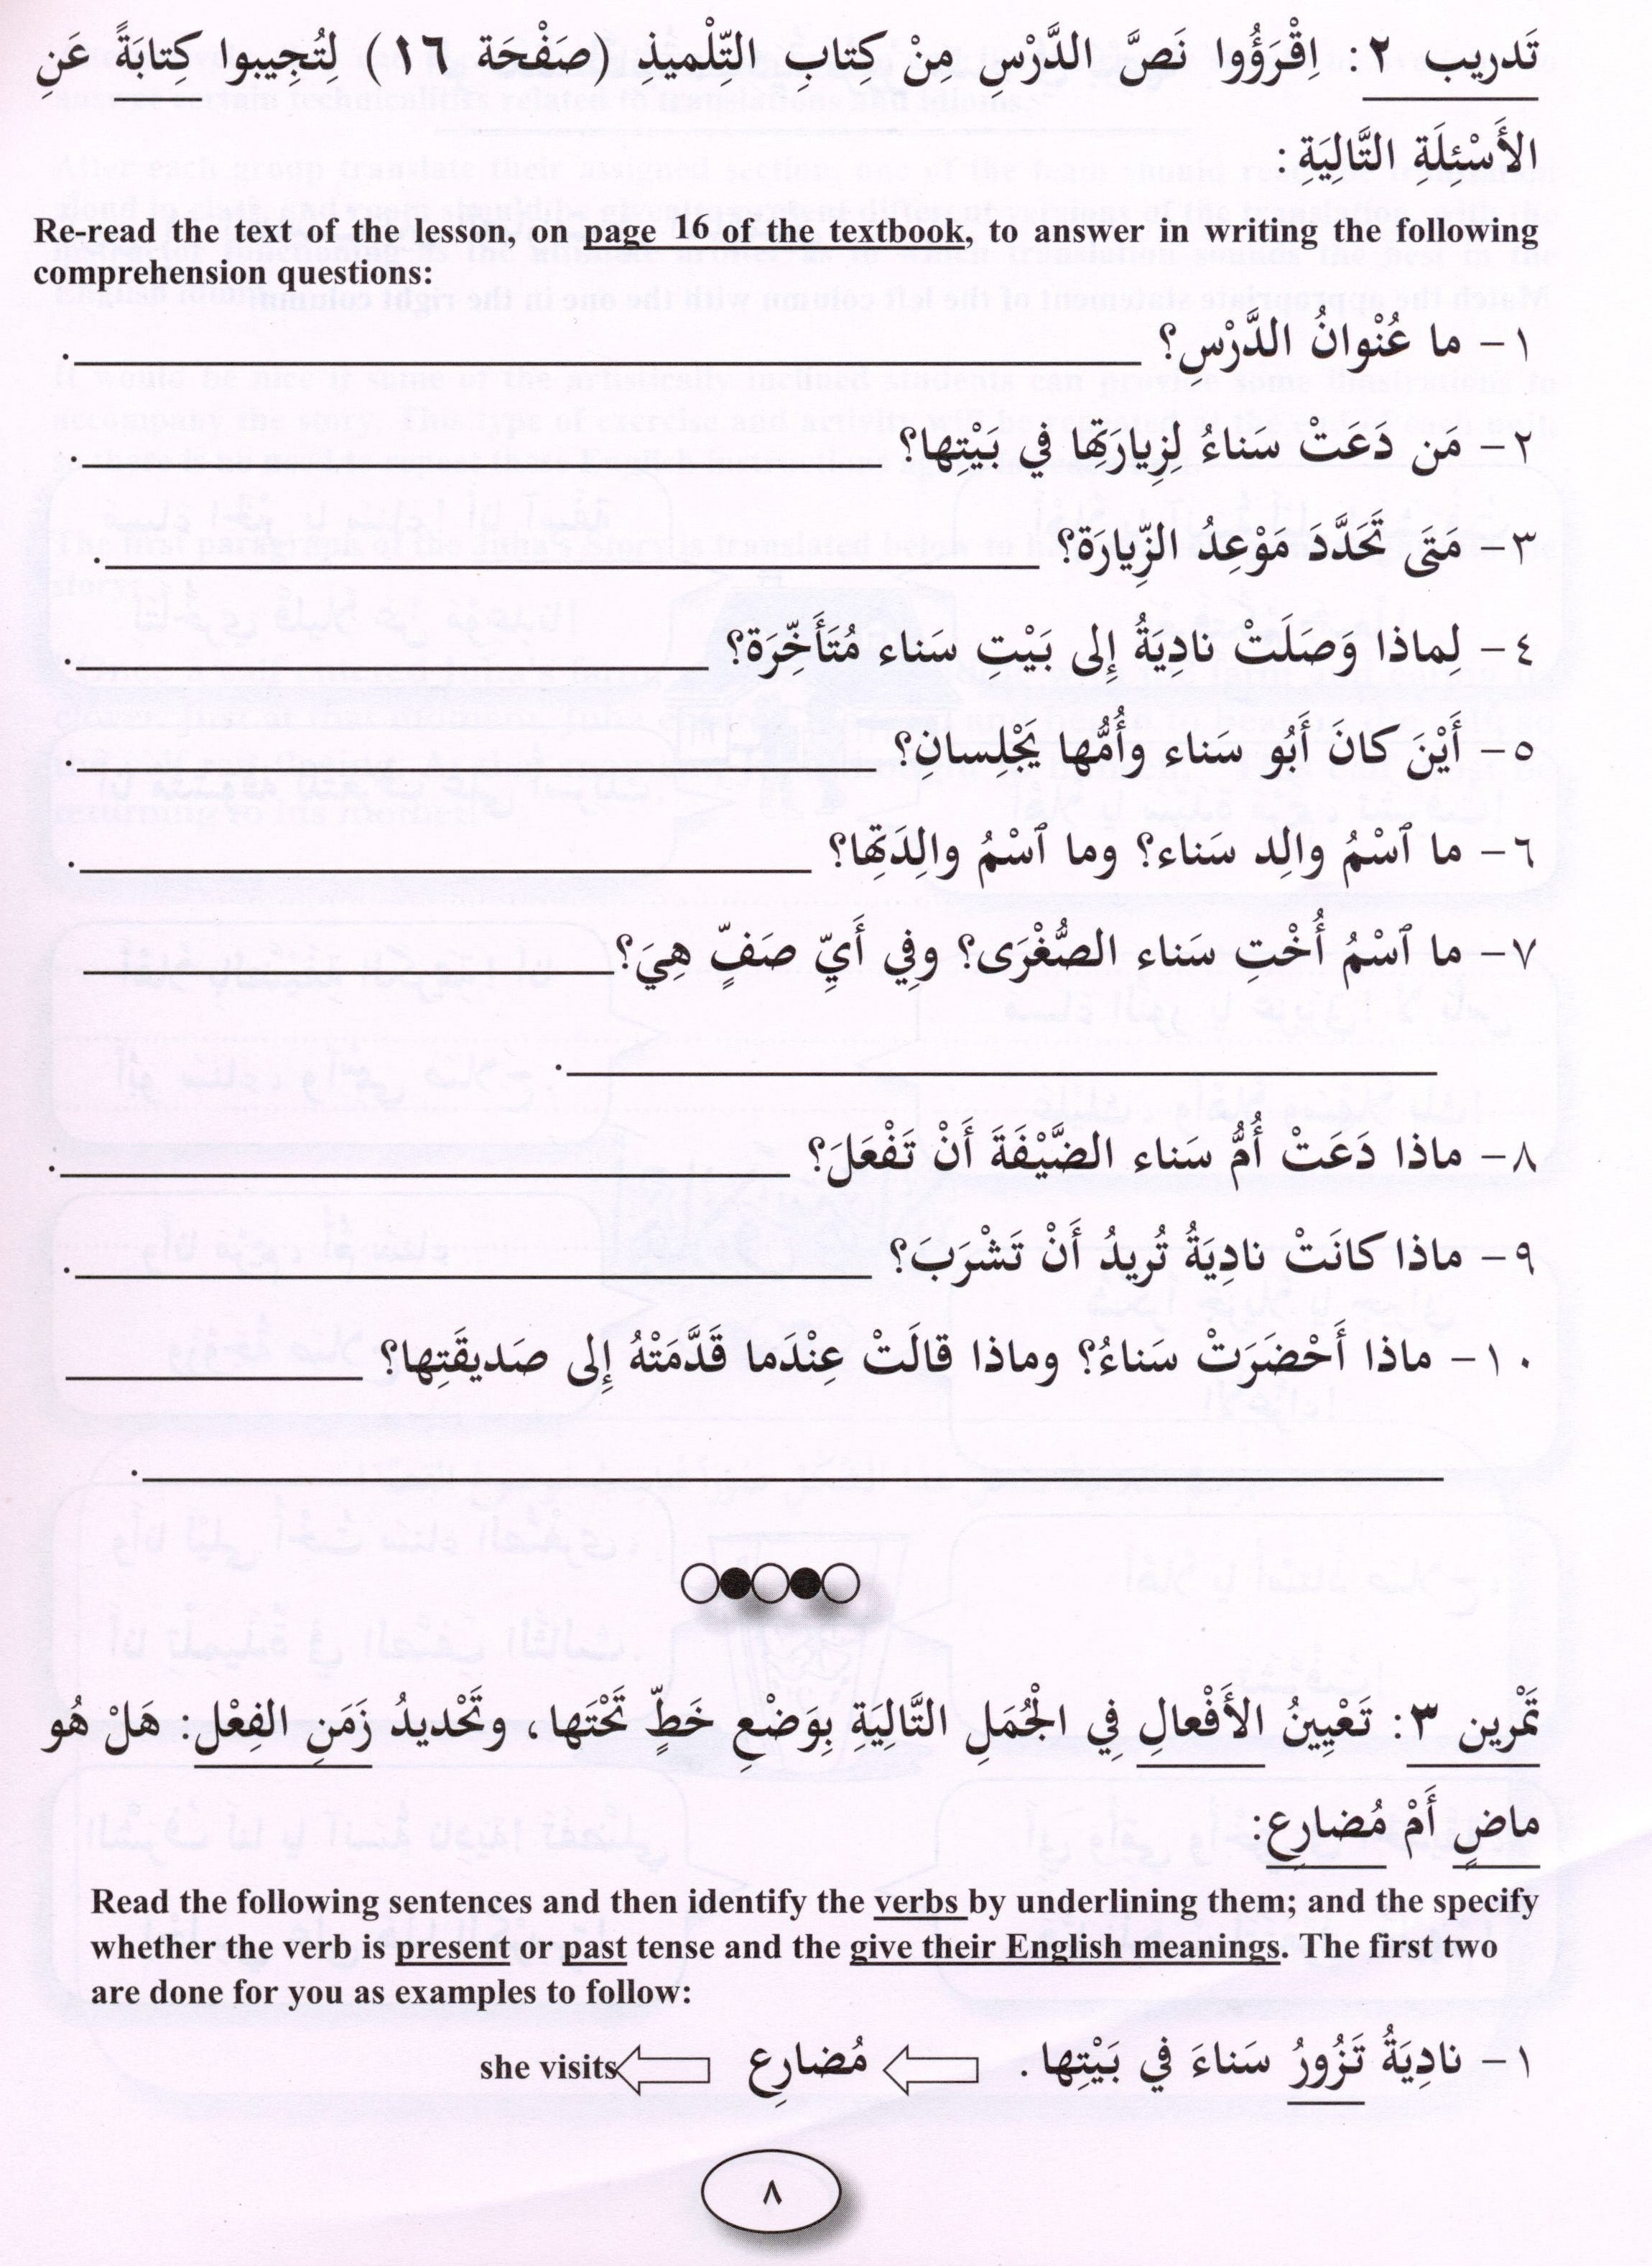 تَدريب ٢ : اِقْرَؤُوا نَصَّ الدَّرْسِ مِنْ كِتابِ التِّلْميذِ (صَفْحَة ١٦) لِتُجِيبوا كِتابَةً عَنِ
الأَسْئِلَةِ التَّالِيَةِ :
Re-read the text of the lesson, on page 16 of the textbook, to answer in writing the following
comprehension questions:
١ - ما عُنْوانُ الدَّرْسِ؟ .
٢ - مَن دَعَتْ سَناءُ لِزِيارَتِها في بَيْتِها؟ .
٣ - مَتَى تَحَدَّدَ مَوْعِدُ الزِّيارَة؟ .
٤ - لِماذا وَصَلَتْ نادِيَةُ إِلى بَيْتِ سَناء مُتَأَخِّرَة؟ .
٥ - أَيْنَ كانَ أَبُو سَناء وأُمُّها يَجْلِسانِ؟ .
٦ - ما ٱسْمُ والِد سَناء؟ وما ٱسْمُ والِدَتِها؟ .
٧ - ما ٱسْمُ أُخْتِ سَناء الصُّغْرَى؟ وفِي أَيِّ صَفٍّ هِيَ؟
.
٨ - ماذا دَعَتْ أُمُّ سَناء الضَّيْفَةَ أَنْ تَفْعَلَ؟ .
٩ - ماذا كانَتْ نادِيَةُ تُريدُ أَنْ تَشْرَبَ؟ .
١٠ - ماذا أَحْضَرَتْ سَناءُ؟ وماذا قالَتْ عِنْدَما قَدَّمَتْهُ إِلى صَديقَتِها؟
.
تَمْرين ٣ : تَعْيِينُ الأَفْعالِ فِي الْجُمَلِ التَّالِيَةِ بِوَضْعِ خَطٍّ تَحْتَها ، وتَحْديدُ زَمَنِ الفِعْل : هَلْ هُو
ماضٍ أَمْ مُضارِع :
Read the following sentences and then identify the verbs by underlining them; and the specify
whether the verb is present or past tense and the give their English meanings. The first two
are done for you as examples to follow:
١ - نادِيَةُ تَزُورُ سَناءَ في بَيْتِها . مُضارِع she visits
٨